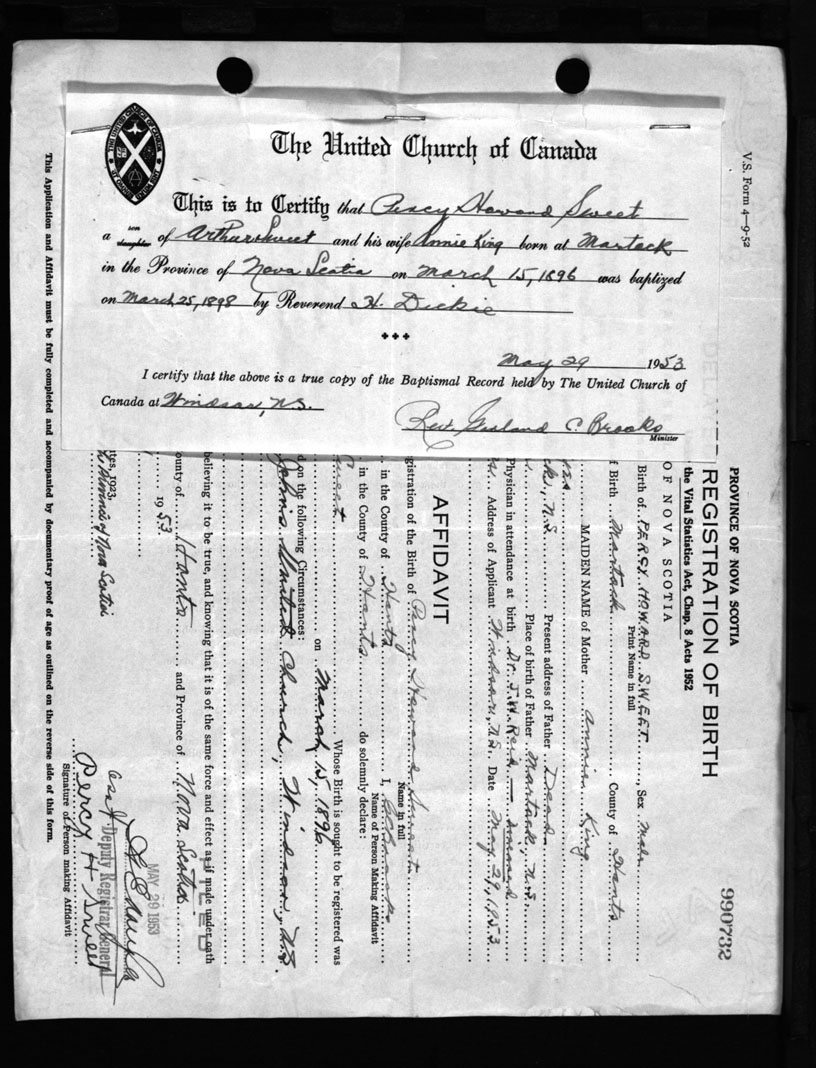 The United Church of Canada
This is to Certify that Percy Howard Sweet
a son daughter of Arthur Sweet and his wife Annie King born at Martock
in the Province of Nova Scotia on March 15, 1896 was baptized
on March 25, 1898 by Reverend H. Dickie
May 29 1953
I certify that the above is a true copy of the Baptismal Record held by The United Church of
Canada at Windsor, N.S.
Rev. Garland C. Brooks
Minister
V.S. Form 4—9-52
990732
PROVINCE OF NOVA SCOTIA
REGISTRATION OF BIRTH
the Vital Statistics Act, Chap. 8 Acts 1952
OF NOVA SCOTIA
Birth of PERCY HOWARD SWEET, Sex Male
Print Name in full
f Birth Martock County of Hants
MAIDEN NAME of Mother Annie King
Present address of Father Dead
ck, N.S. Place of birth of Father Martock, N.S.
Physician in attendance at birth Dr. J. W. Reid
Address of Applicant Windsor, N.S. Date May 29, 1953
AFFIDAVIT
gistration of the Birth of Percy Howard Sweet
Name in full
in the County of Hants I,
Name of Person Making Affidavit
in the County of Hants do solemnly declare:
Sweet Whose Birth is sought to be registered was
on March 15, 1896
d on the following Circumstances:
Johns United Church, Windsor, N.S.
believing it to be true, and knowing that it is of the same force and effect as if made under oath
FILED
ounty of Hants and Province of Nova Scotia
1953.
MAY 29 1953
Deputy Registrar General
Percy H Sweet
Signature of Person making Affidavit
This Application and Affidavit must be fully completed and accompanied by documentary proof of age as outlined on the reverse side of this form.